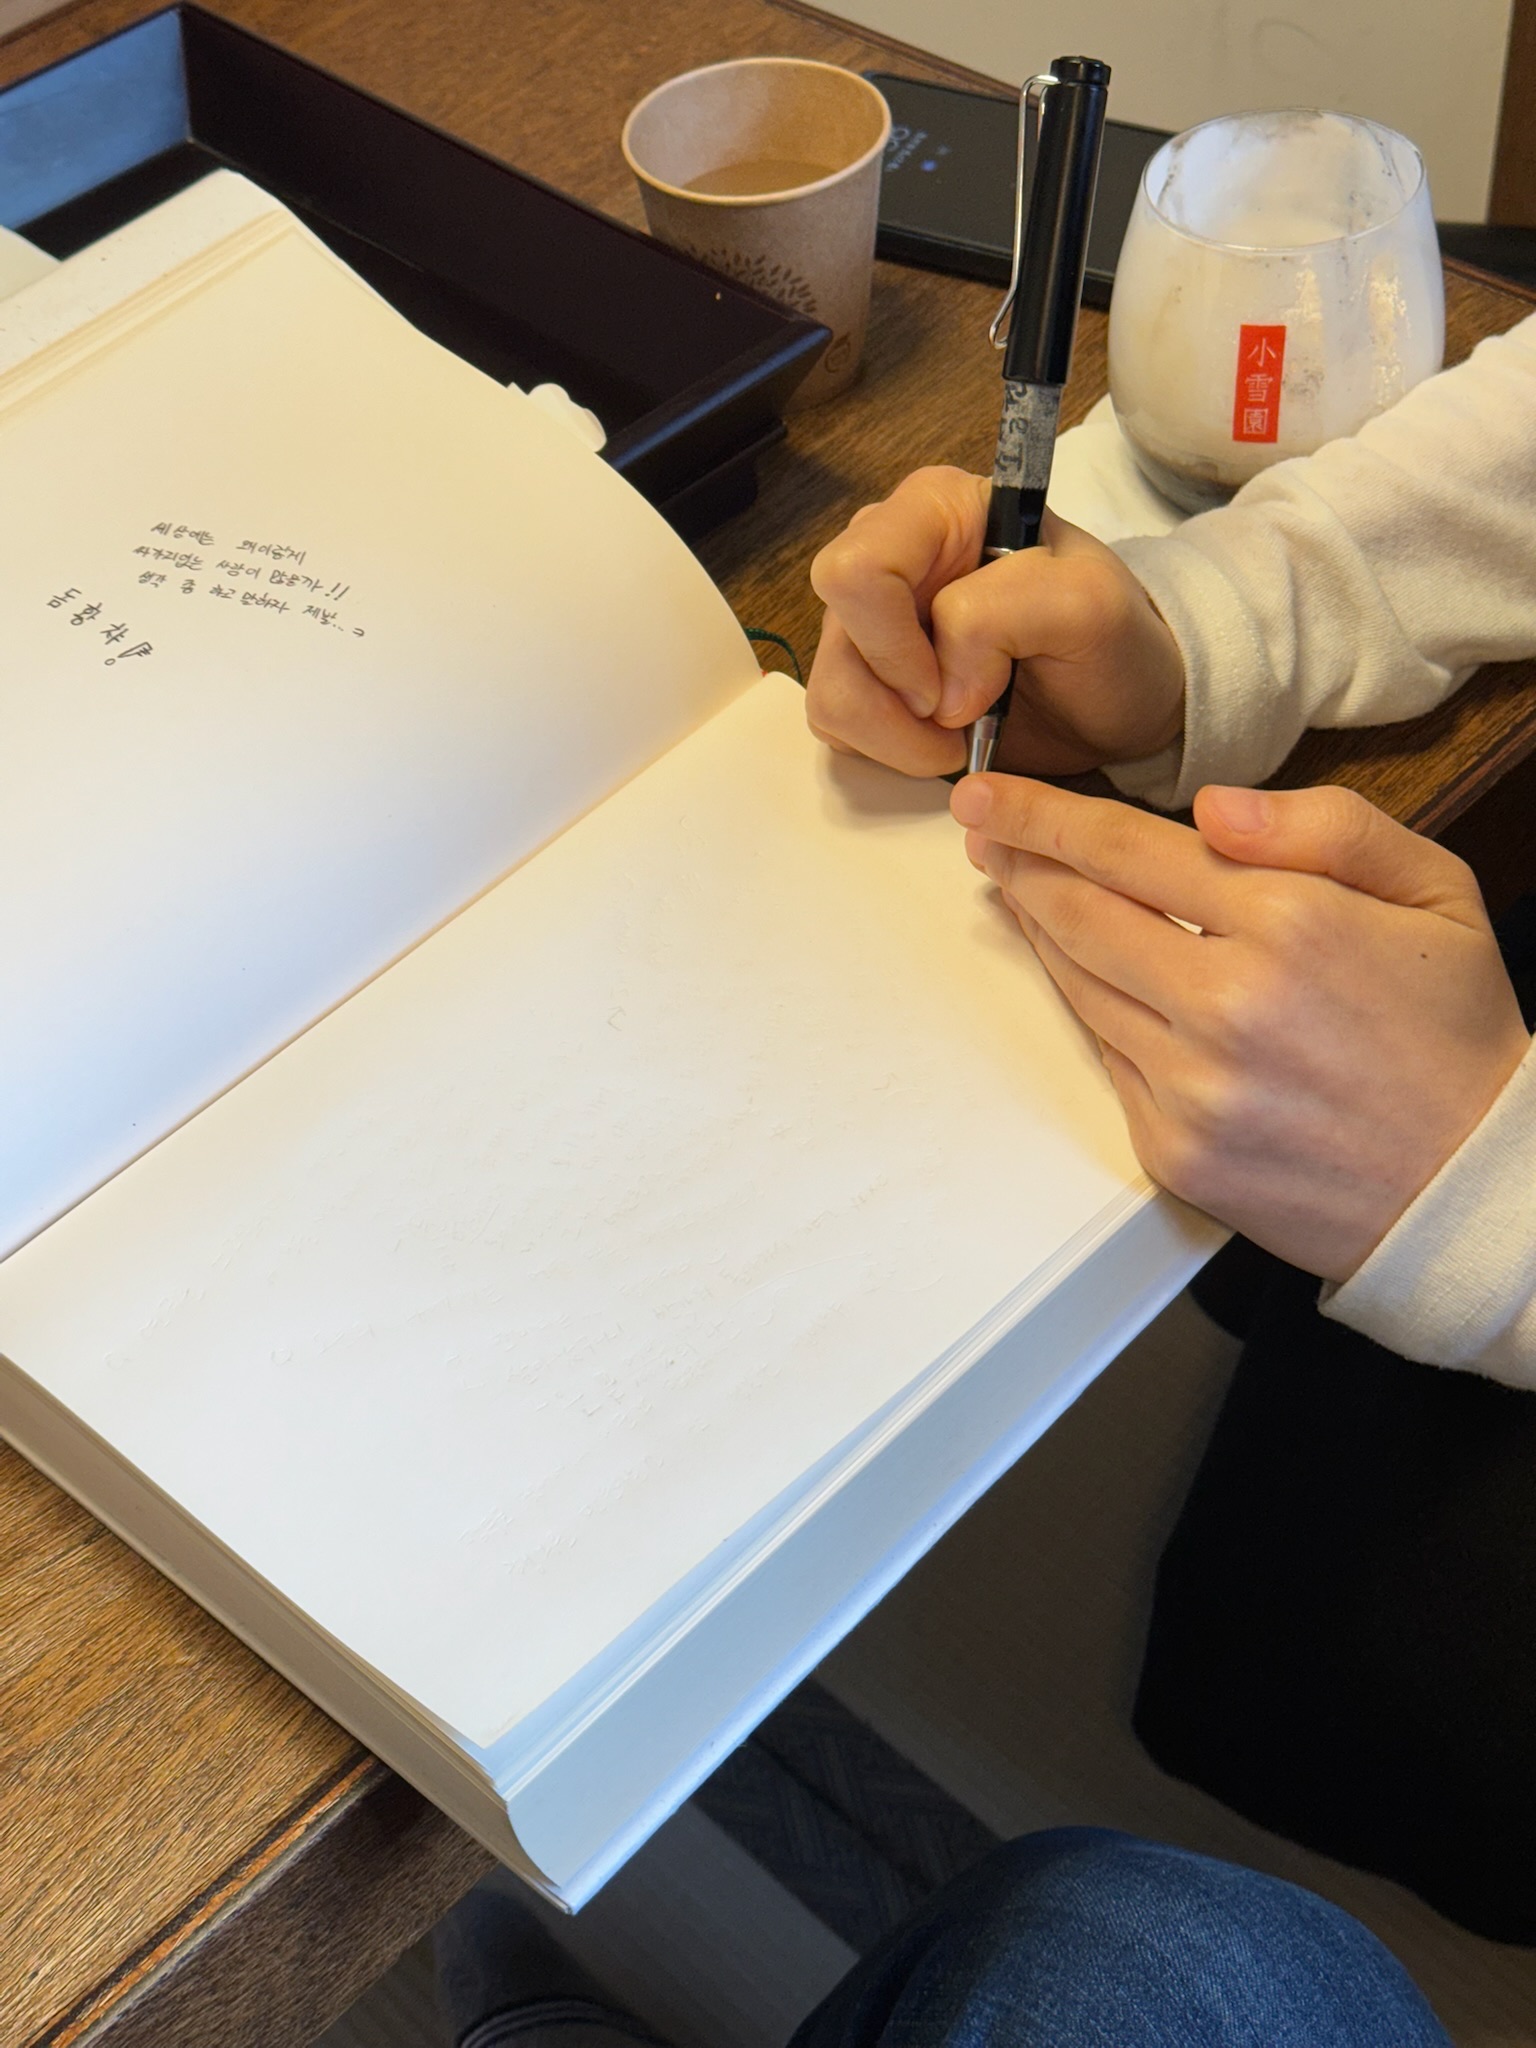 세상에는 왜이렇게
싸가지없는 사람이 많을까!!
생각 좀 하고 말하자 제발...
小雪園